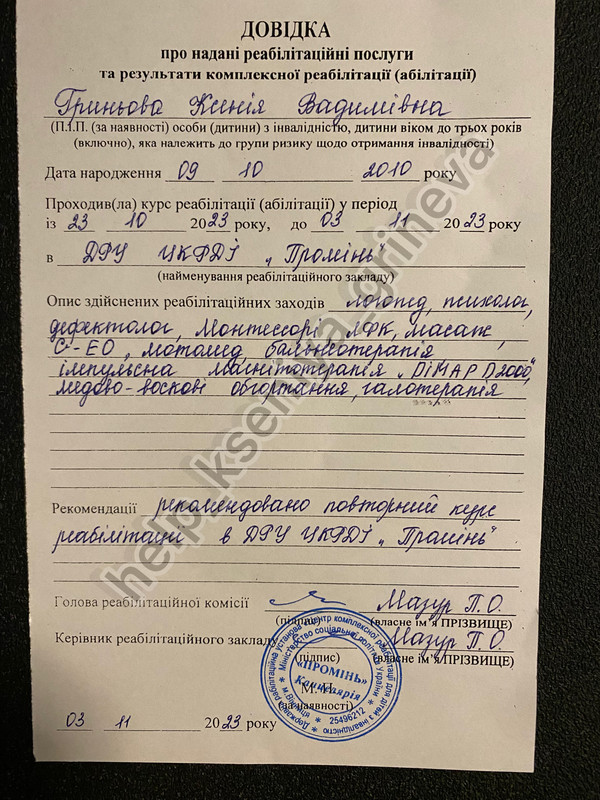 ДОВІДКА
про надані реабілітаційні послуги
та результати комплексної реабілітації (абілітації)
Гриньова Ксенія Вадимівна
(П.І.П. (за наявності) особи (дитини) з інвалідністю, дитини віком до трьох років
(включно), яка належить до групи ризику щодо отримання інвалідності)
Дата народження 09 10 2010 року
Проходив(ла) курс реабілітації (абілітації) у період
із 23 10 2023 року, до 03 11 2023 року
в ДРУ ЦКРДІ „Промінь"
(найменування реабілітаційного закладу)
Опис здійснених реабілітаційних заходів логопед, психолог,
дефектолог, Монтессорі ЛФК, масаж,
С-ЕО, мотомед, бальнеотерапія
імпульсна магнітотерапія „DIMAP D2000",
медово-воскові обгортання, галотерапія
Рекомендації рекомендовано повторний курс
реабілітації в ДРУ ЦКРДІ „Промінь"
Голова реабілітаційної комісії Мазур П.О.
(підпис) (власне ім'я ПРІЗВИЩЕ)
Керівник реабілітаційного закладу Мазур П.О.
(підпис) (власне ім'я ПРІЗВИЩЕ)
М.П.
(за наявності)
03 11 2023 року
Державна реабілітаційна установа центр комплексної реабілітації для дітей з інвалідністю
Міністерство соціальної політики України
м.Вінниця
25496212
«ПРОМІНЬ»
Канцелярія